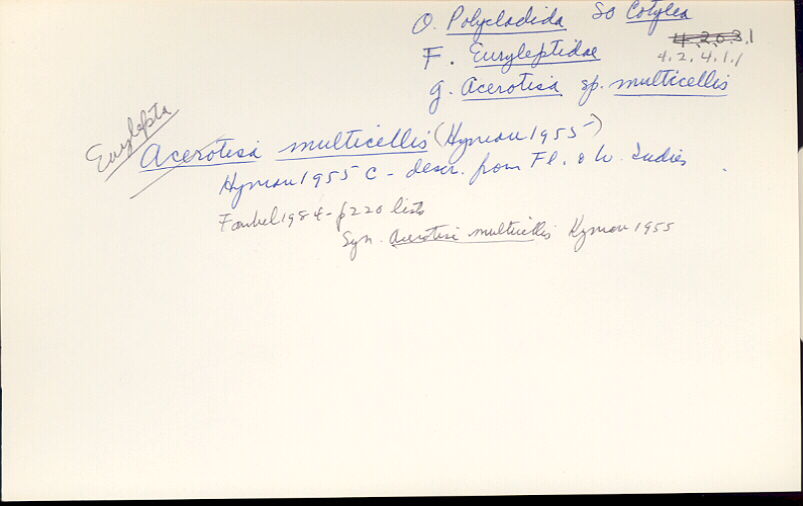 O. Polycladida SO Cotylea
4.2.0.3.1
F. Euryleptidae 4.2.4.1.1
g. Acerotisa sp. multicellis
Eurylepta
Acerotisa multicellis (Hyman 1955)
Hyman 1955 C - descr. from Fl. & W. Indies
Faubel 1984 - p220 lists
Syn. Acerotisa multicellis Hyman 1955